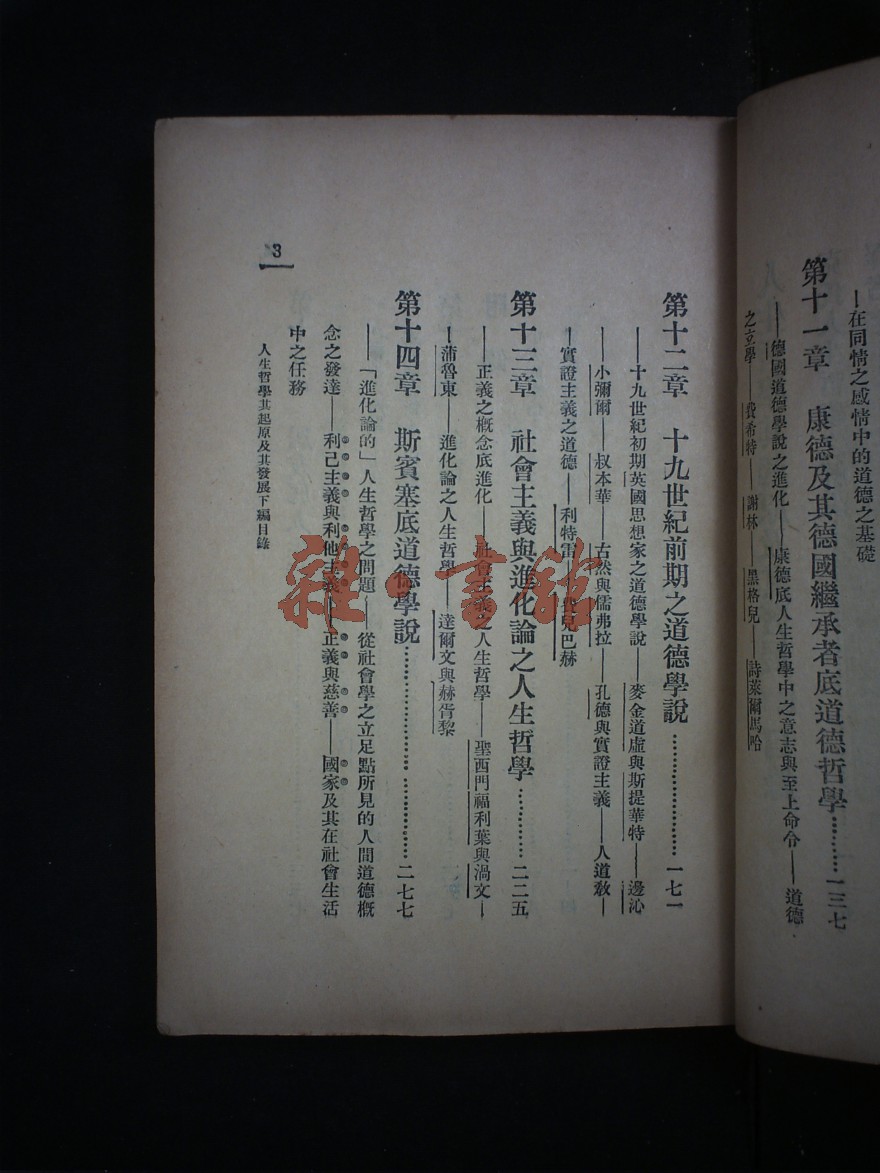 —在同情之感情中的道德之基礎
第十一章　康德及其德國繼承者底道德哲學………一三七
——德國道德學說之進化——康德底人生哲學中之意志與至上命令——道德
之立學——費希特——謝林——黑格兒——詩萊爾馬哈
第十二章　十九世紀前期之道德學說…………………一七一
——十九世紀初期英國思想家之道德學說——麥金道虛與斯提華特——邊沁
——小彌爾——叔本華——古然與儒弗拉—孔德與實證主義——人道教—
—實證主義之道德——利特雷——費兒巴赫
第十三章　社會主義與進化論之人生哲學…………二二五
——正義之概念底進化——社會主義之人生哲學——聖西門福利葉與渦文—
—蒲魯東——進化論之人生哲學——達爾文與赫胥黎
第十四章　斯賓塞底道德學說………………………………二七七
——「進化論的」人生哲學之問題——從社會學之立足點所見的人間道德概
念之發達——利己主義與利他主義——正義與慈善——國家及其在社會生活
中之任務
人生哲學其起原及其發展下編目錄
3
雜·書館